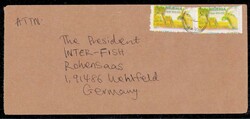 ATTN
The President
INTER-FISH
Rohensaas
1,91486 Uehlfeld
Germany